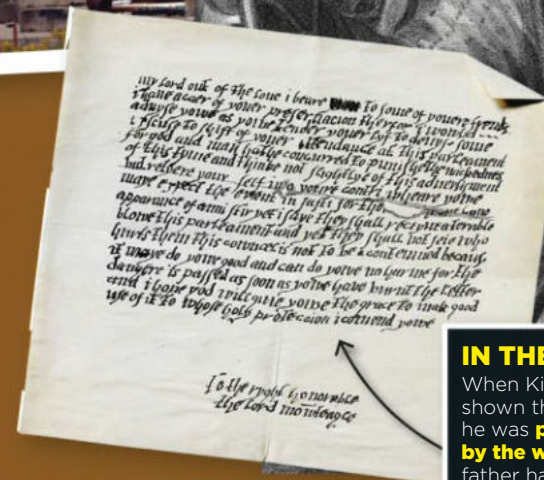 my lord out of the loue i beare to some of youere frends
i haue a caer of youer preseruacion therfor i would
aduyse yowe as yowe tender youer lyf to deuys some
excuse to shift of youer attendance at this parleament
for god and man hathe concurred to punishe the wickednes
of this tyme and thinke not slightlye of this aduertisment
but retyere youre self into youre contri wheare yowe
maye expect the event in safti for
apparance of anni stir yet i saye they shall receyue a terrible
blowe this parleament and yet they shall not seie who
hurts them this cowncel is not to be contemned becaus
it maye do yowe good and can do yowe no harme for the
dangere is passed as soon as yowe have burnt the letter
and i hope god will giue yowe the grace to mak good
use of it to whose holy proteccion i comend yowe
To the right honorable
the lord mowteagle
IN THE
When Ki
shown th
he was p
by the w
father ha